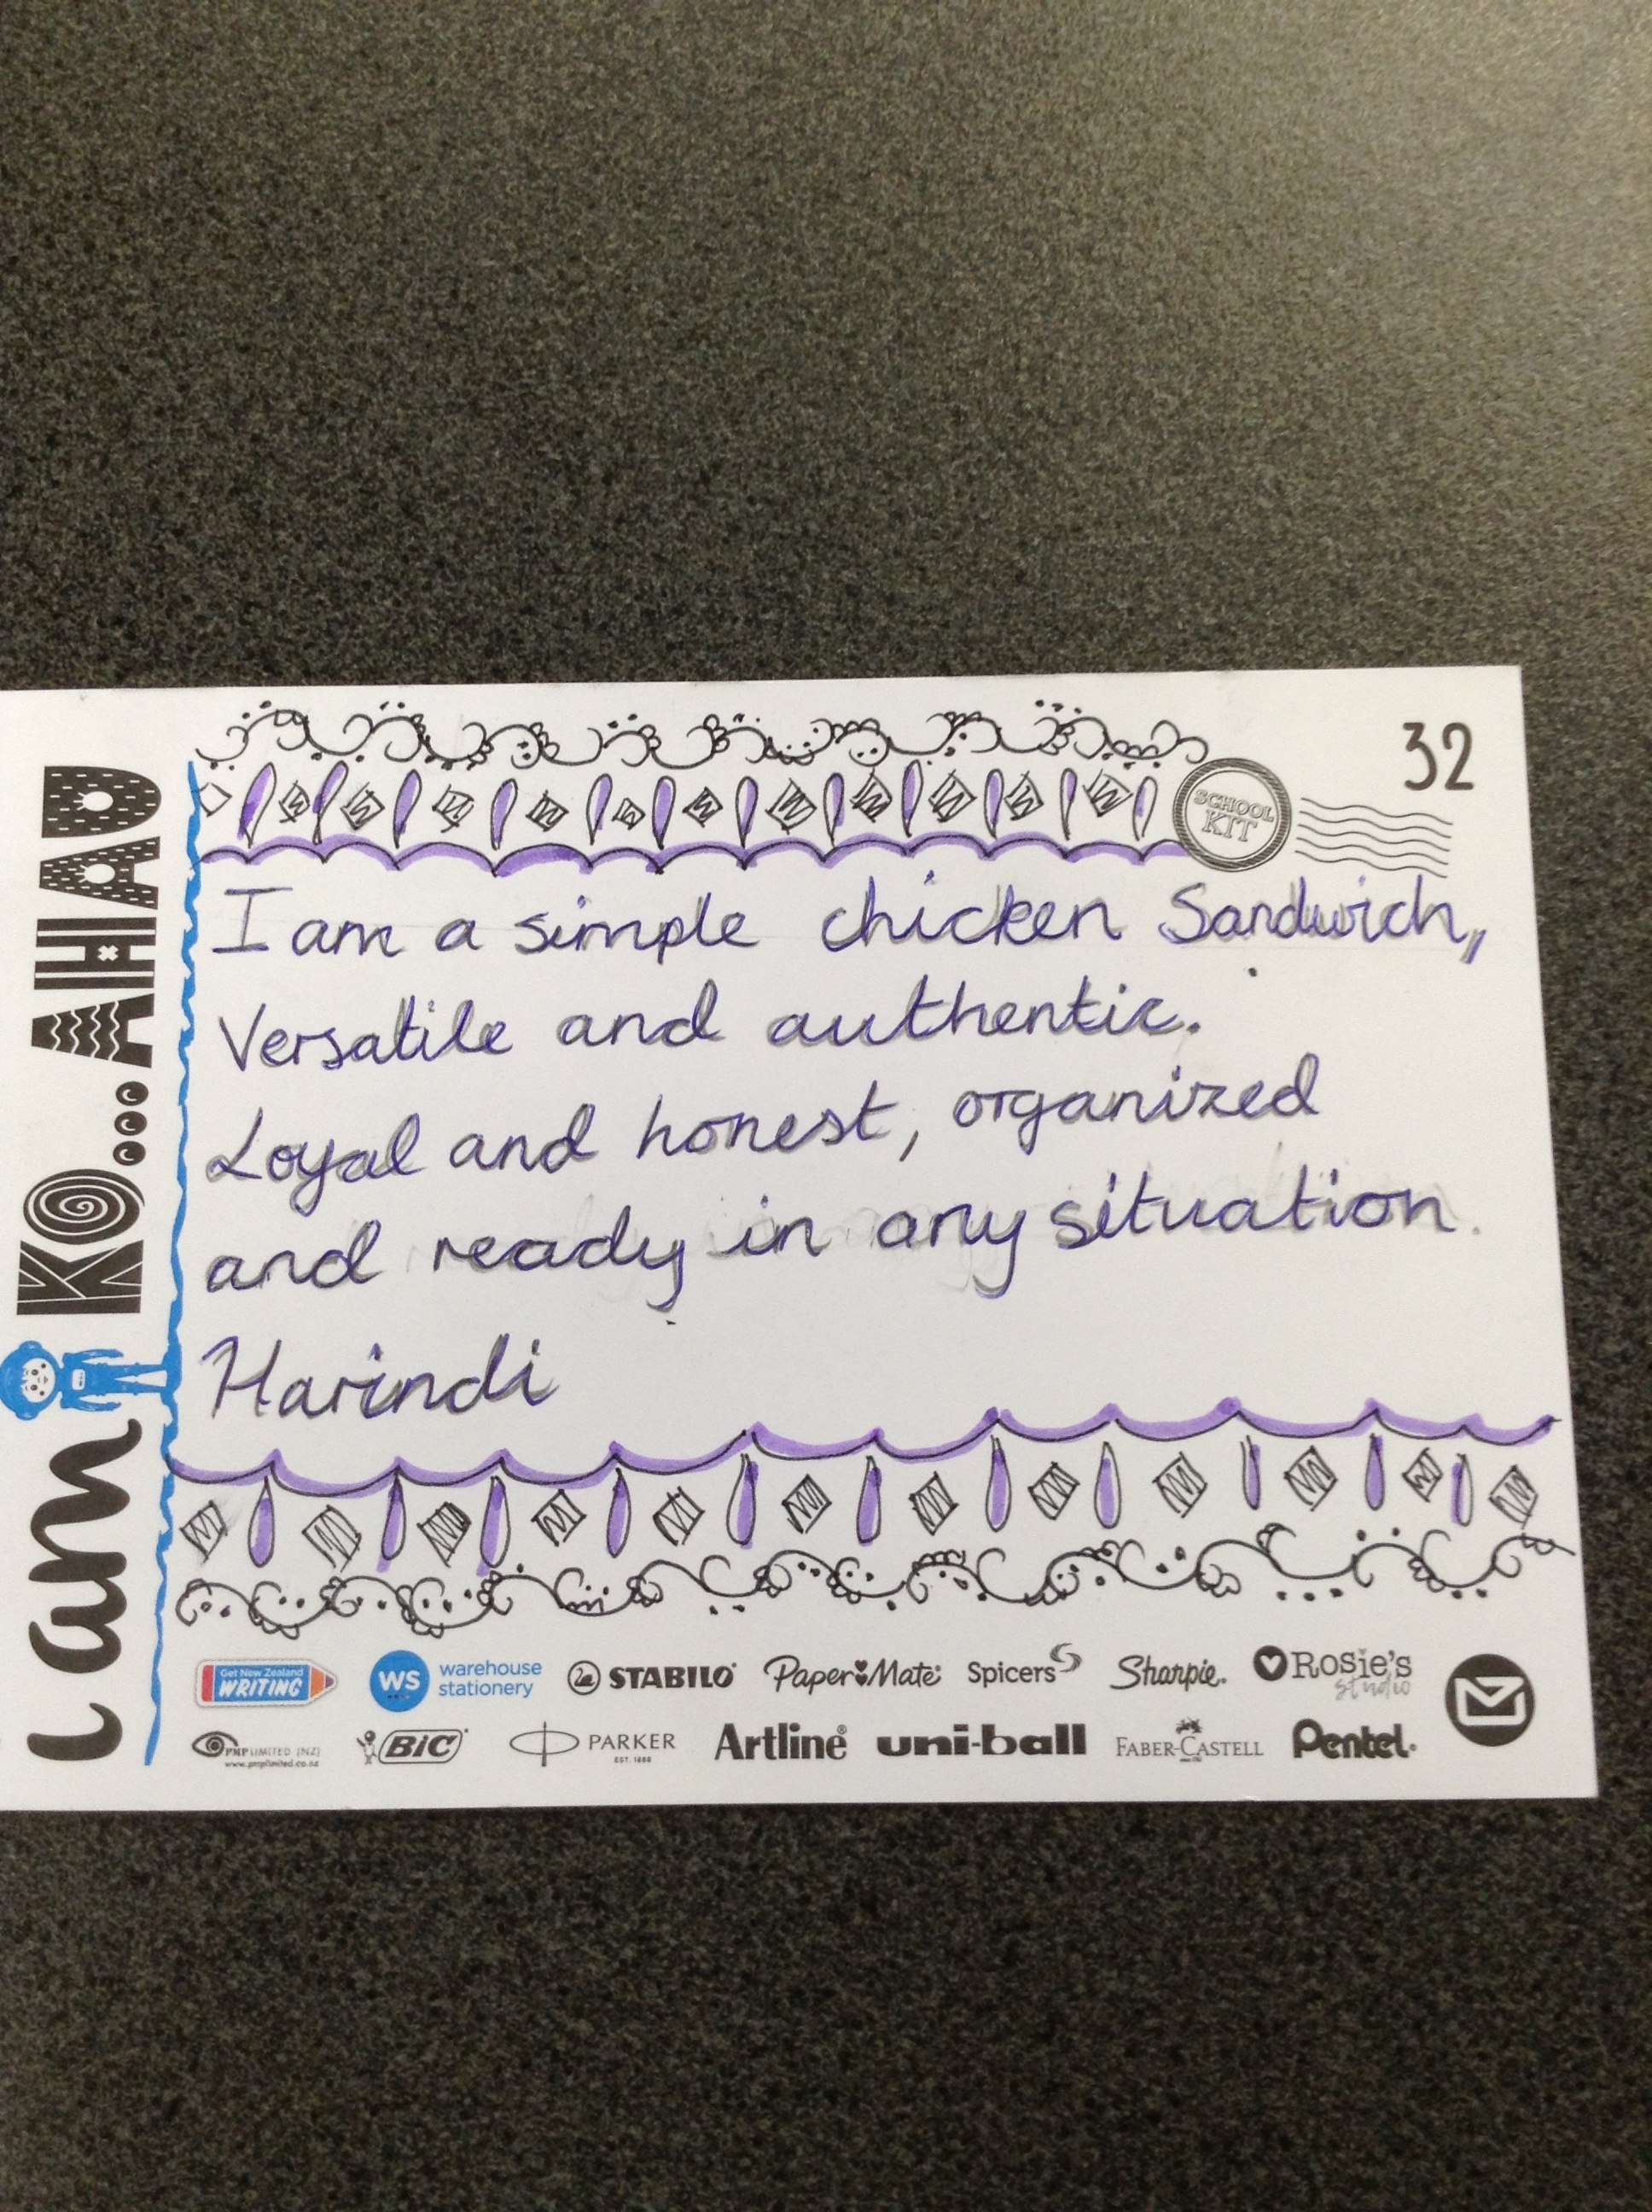 32
SCHOOL
KIT
I am KO...AHAU
I am a simple chicken Sandwich,
Versatile and authentic.
Loyal and honest, organized
and ready in any situation.
Harindi
Get New Zealand
WRITING
WS warehouse
stationery
STABILO
Paper Mate
Spicers
Sharpie.
Rosie's
studio
PMP LIMITED (NZ)
www.pmplimited.co.nz
BIC
PARKER
EST. 1888
Artline
uni-ball
FABER-CASTELL
Pentel.